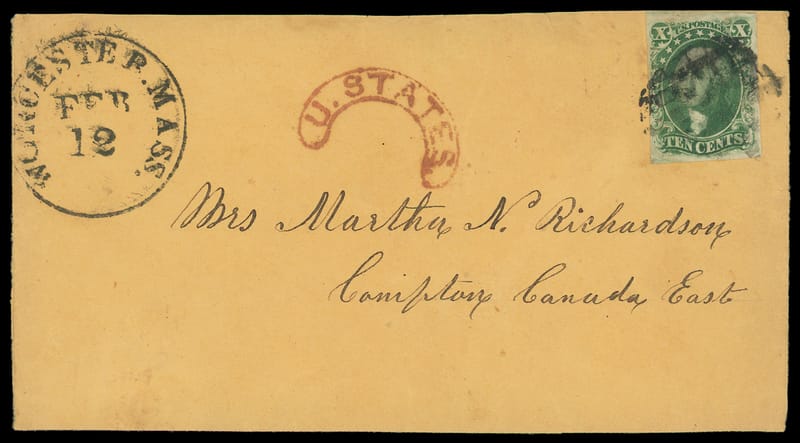 WORCESTER. MASS.
FEB
12
U. STATES
X U.S. POSTAGE X
TEN CENTS.
Mrs Martha N. Richardson
Compton Canada East